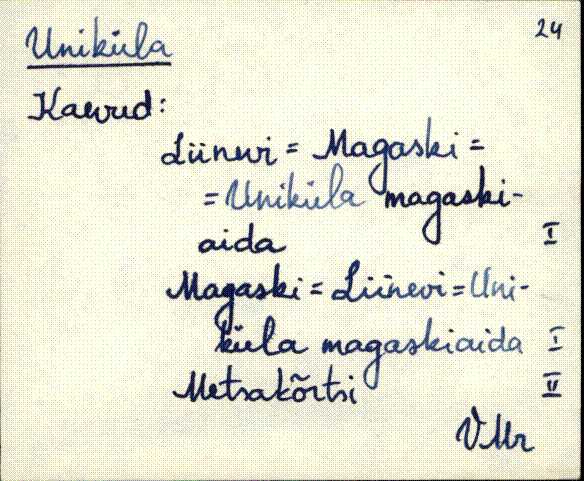 24
Uniküla
Kaevud:
Liinevi = Magaski =
= Uniküla magaski-
aida I
Magaski = Liinevi = Uni-
küla magaskiaida I
Metsakõrtsi II
VMr